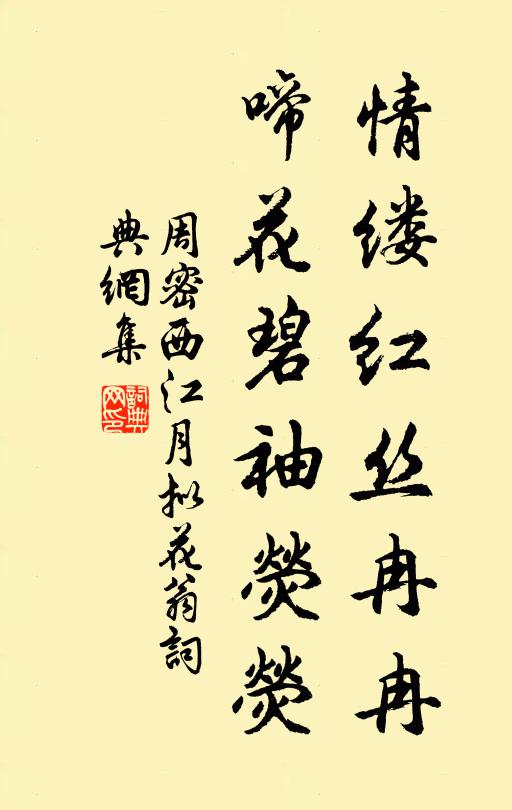 情缕红丝冉冉
啼花碧袖熒熒
周密西江月拟花翁詞
典網集
詞典网印